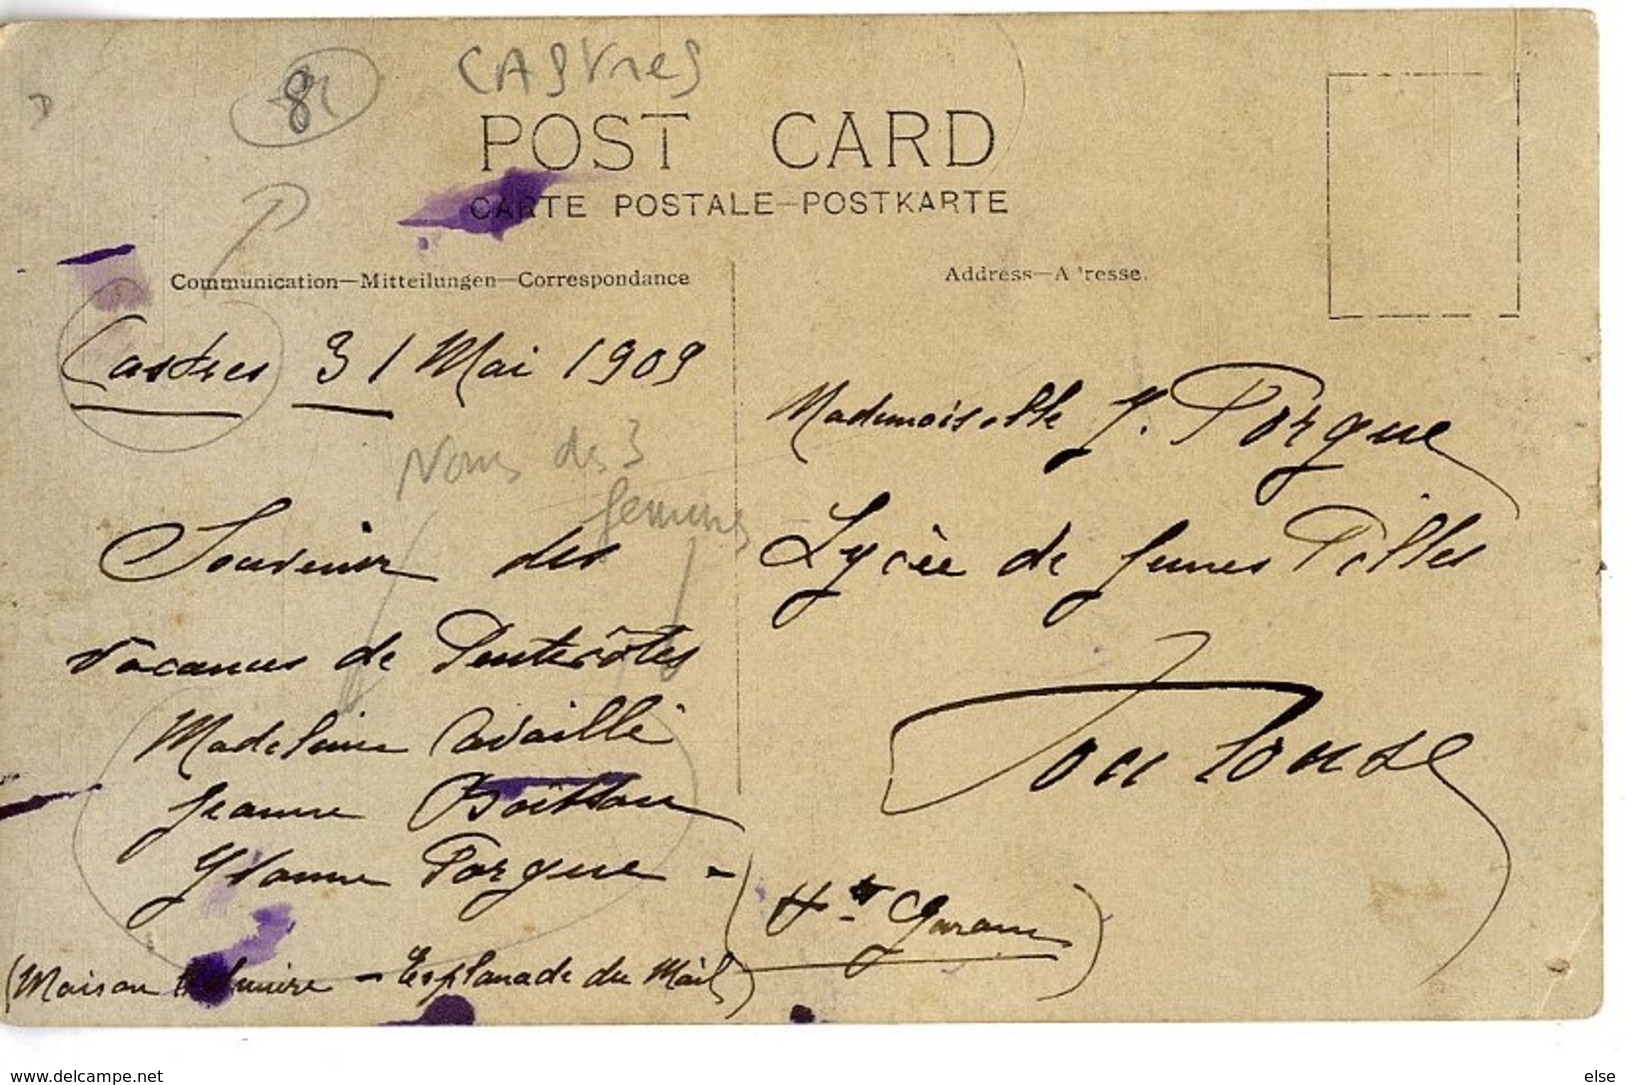 81
CASTRES
POST CARD
CARTE POSTALE—POSTKARTE
Communication—Mitteilungen—Correspondance
Address—A resse.
Castres 31 Mai 1909
Noms des 3
femmes
Souvenir des
vacances de Pentecôtes
Madeleine Availlé
Jeanne
Yvonne Porgue -
(Maison - Esplanade du Mail)
Mademoiselle J. Porgue
Lycée de Jeunes Filles
Toulouse
(Hte Garonne)
www.delcampe.net
else